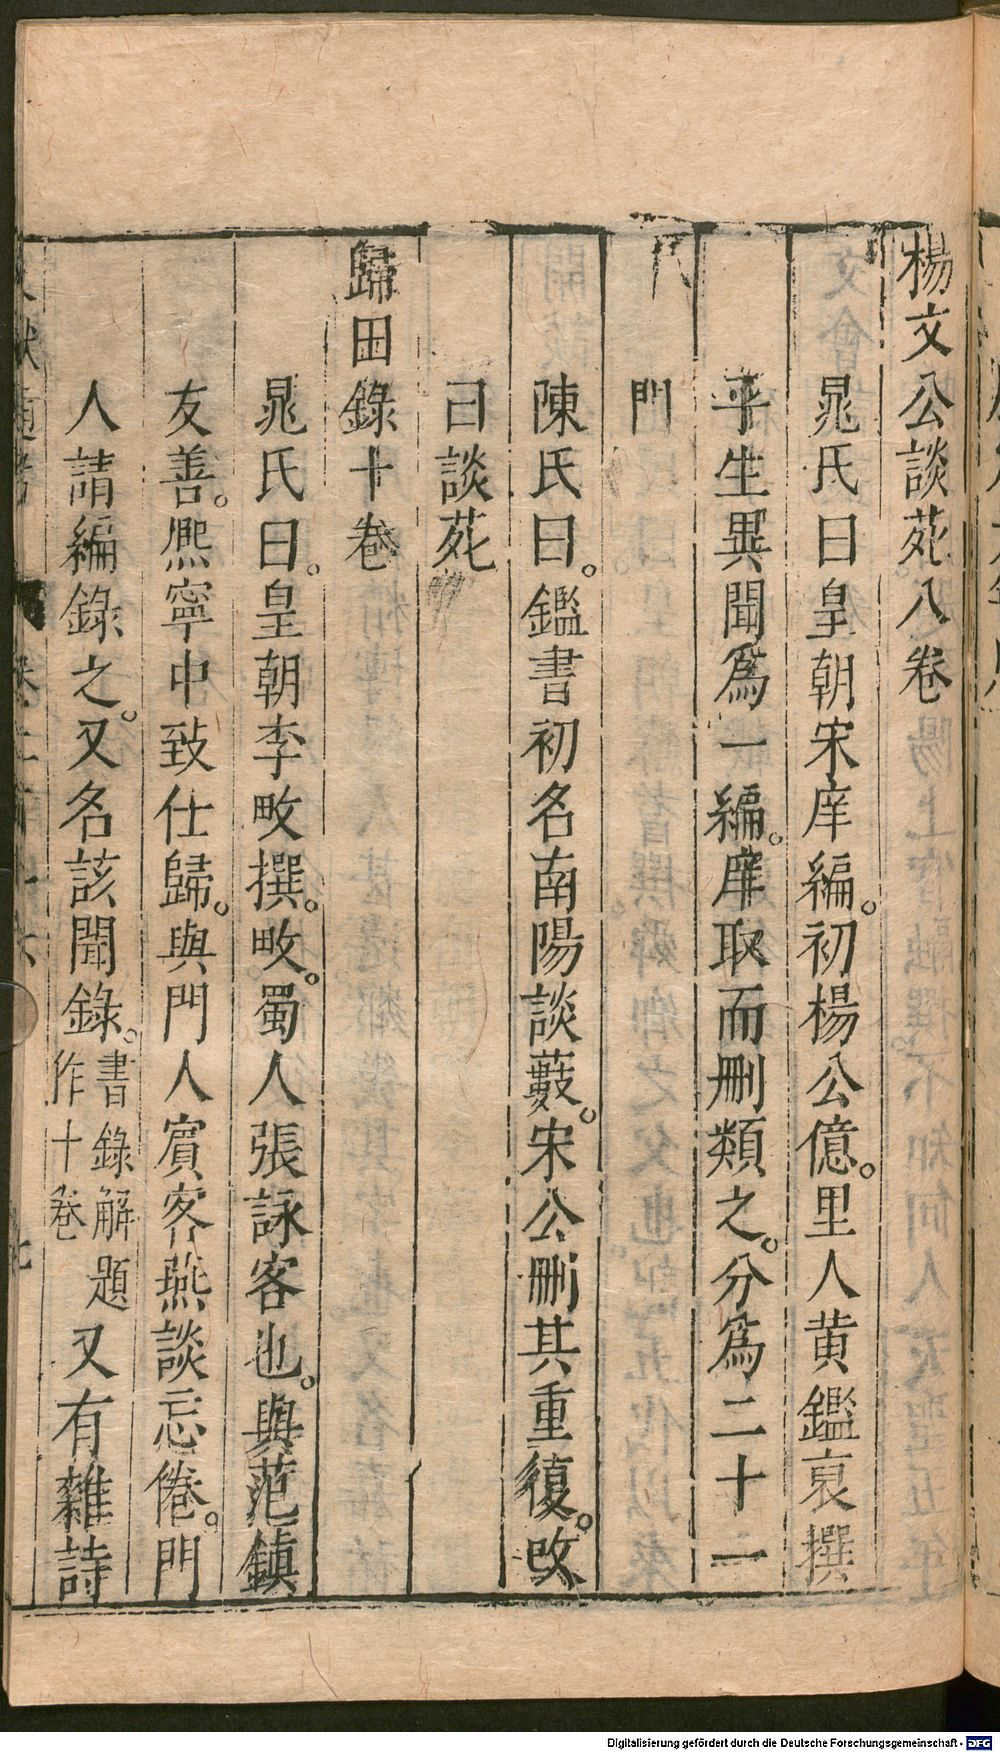 楊文公談苑八卷
晁氏曰皇朝宋庠編。初楊公億。里人黃鑑裒撰
平生異聞爲一編。庠取而删類之。分爲二十一
門
陳氏曰。鑑書初名南陽談藪。宋公删其重復。改
曰談苑
歸田錄十卷
晁氏曰。皇朝李畋撰。畋。蜀人張詠客也。與范鎮
友善。熈寧中致仕歸。與門人賓客燕談忘倦。門
人請編錄之。又名該聞錄。書錄解題作十卷又有雜詩
Digitalisierung gefördert durch die Deutsche Forschungsgemeinschaft - DFG